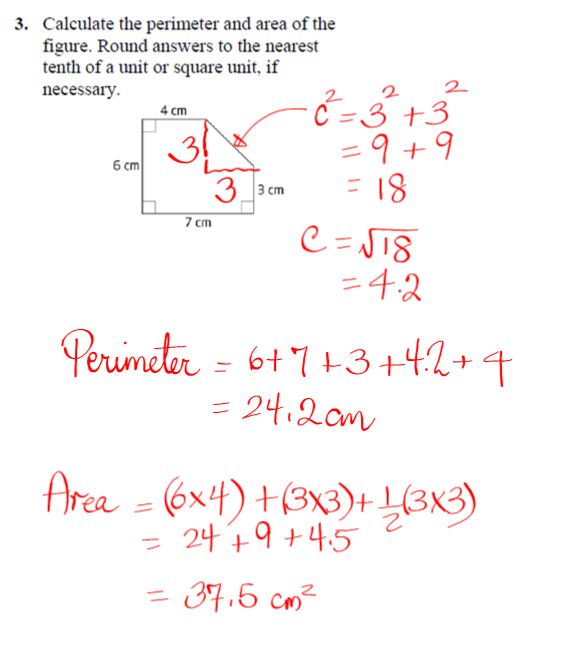 3. Calculate the perimeter and area of the
figure. Round answers to the nearest
tenth of a unit or square unit, if
necessary.
4 cm
6 cm
3
3
3 cm
7 cm
c² = 3² + 3²
= 9 + 9
= 18
C = √18
= 4.2
Perimeter = 6+7+3+4.2+4
= 24.2 cm
Area = (6x4) + (3x3) + ½(3x3)
= 24 + 9 + 4.5
= 37.5 cm²